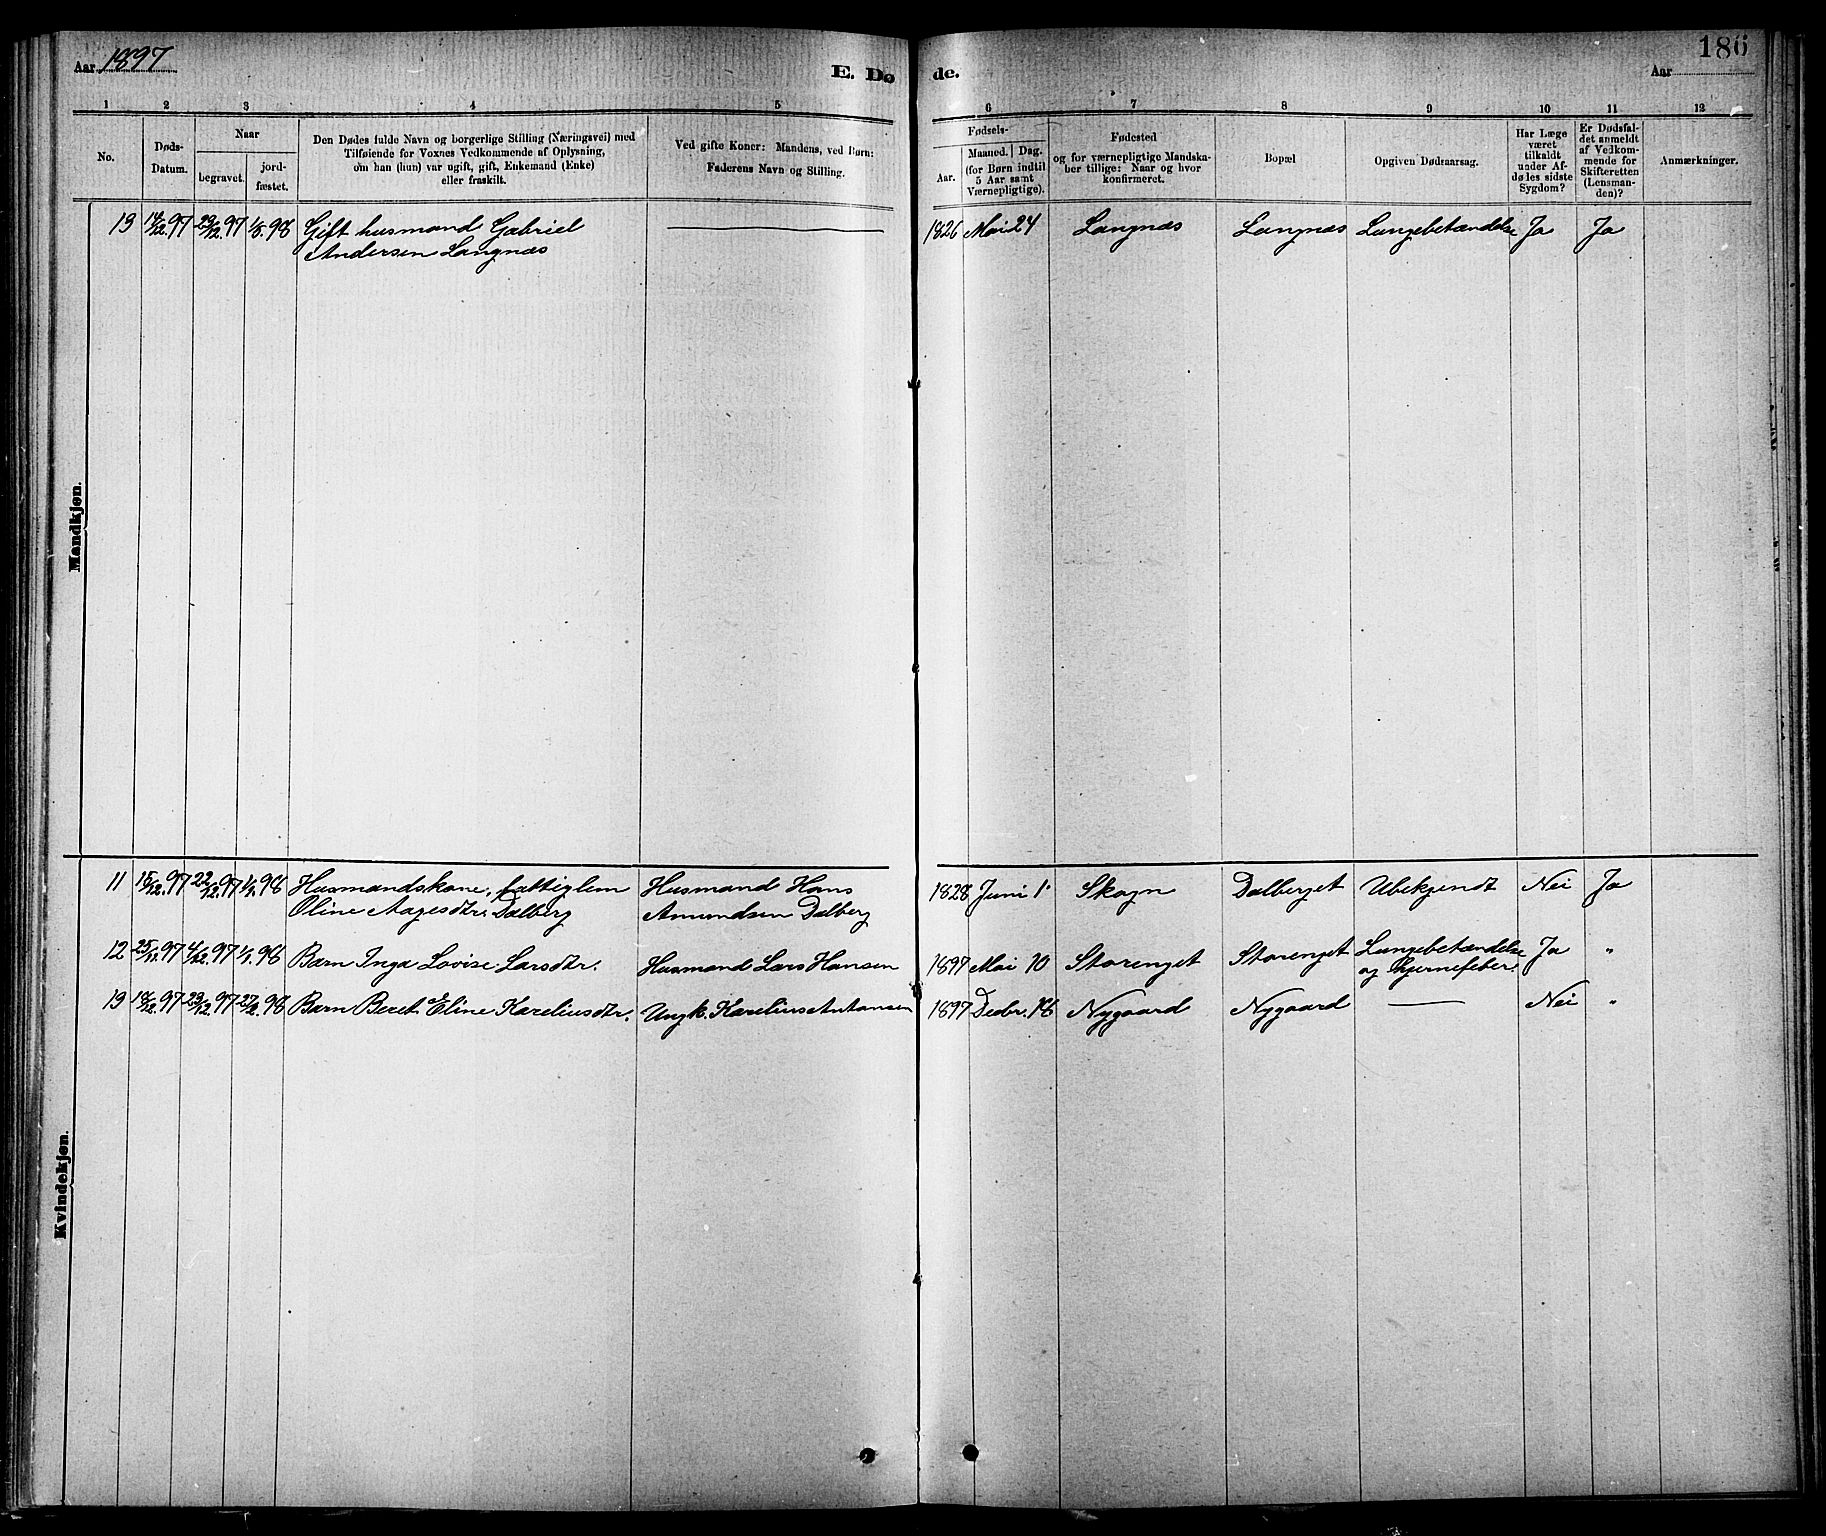 Aar 1897
E. Dø de.
186
Aar
1 2 3 4 5 6 7 8 9 10 11 12
No.
Døds-
Datum.
Naar
begravet.
jord-
fæstet.
Den Dødes fulde Navn og borgerlige Stilling (Næringsvei) med
Tilføiende for Voxnes Vedkommende af Oplysning,
om han (hun) var ugift, gift, Enkemand (Enke)
eller fraskilt.
Ved gifte Koner: Mandens, ved Børn:
Faderens Navn og Stilling.
Fødsels-
Aar.
Maaned. Dag.
(for Børn indtil
5 Aar samt
Værnepligtige).
Fødested
og for værnepligtige Mandska-
ber tillige: Naar og hvor
konfirmeret.
Bopæl
Opgiven Dødsaarsag.
Har Læge
været
tilkaldt
under Af-
dødes sidste
Sygdom?
Er Dødsfal-
det anmeldt
af Vedkom-
mende for
Skifteretten
(Lensman-
den)?
Anmærkninger.
Mandkjøn.
13 14/12.97 23/12.97 1/5.98 Gift husmand Gabriel 1826 Mai 24 Langnæs Langnæs Lungebetændelse Ja Ja
Andersen Langnæs
Kvindekjøn.
11 15/12.97 22/12.97 1/1.98 Husmandskone, fattiglem Husmand Hans 1828 Juni 1 Skogn Dalberget Ubekjendt Nei Ja
Oline Aagesdtr. Dalberg Amundsen Dalberg
12 25/11.97 4/12.97 1/1.98 Barn Inga Lovise Larsdtr. Husmand Lars Hansen 1897 Mai 10 Storenget Storenget Lungebetændelse Ja "
og hjernefeber.
13 18/12.97 23/12.97 27/2.98 Barn Beret Eline Kareliusdtr. Ungk. Karelius Antonsen 1897 Decbr. 18 Nygaard Nygaard — Nei "